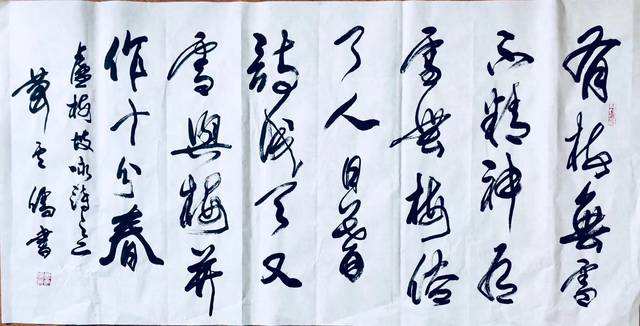 有梅無雪
不精神有
雪無梅俗
了人日暮
詩成天又
雪與梅并
作十分春
盧梅坡咏詩之二
書